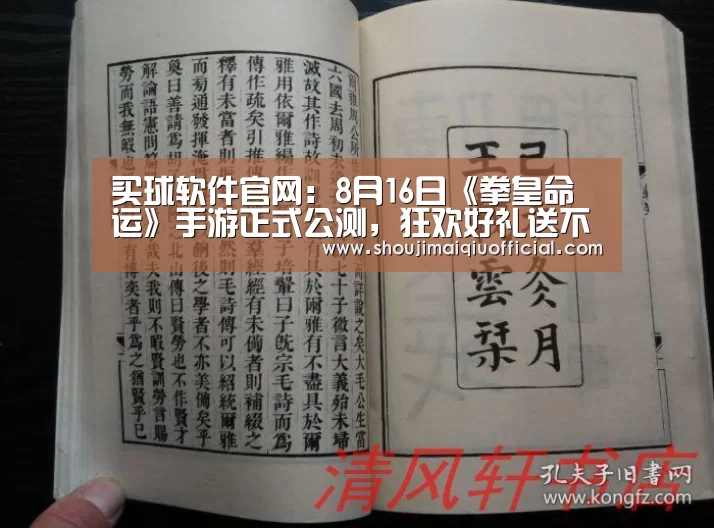 买球软件官网：8月16日《拳皇命
运》手游正式公测，狂欢好礼送不
www.shoujimaiqiuofficial.com
冬月
王雲栞
爾雅周公所 而詳說之矣大毛公生當
六國去周初未 七十子微言大義殆未埽
滅故其作詩故訓 有具於爾雅有不盡具於爾
雅用依爾雅編 子培翬曰子旣宗毛詩而爲
傳作疏矣引 羣經經有未備者則補綴之
釋有未當者則 然則毛詩傳可以紹統爾雅
而 通發揮淹 餉後之學者不亦美備矣乎
奐曰善請爲胡 之北山傳曰賢勞也不作賢才
解論語憲問篇 哉夫我則不暇賢訓勞言賴
勞而我無暇也 有博奕者乎爲之猶賢乎已
清风轩书店
孔夫子旧书网
www.kongfz.com